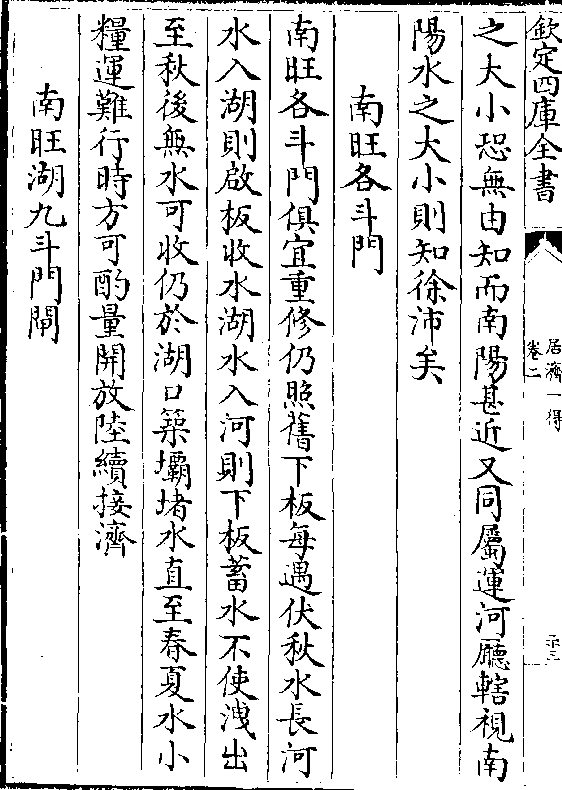 欽定四庫全書
居濟一得
卷二
之大小恐無由知而南陽甚近又同屬運河廳轄視南
陽水之大小則知徐沛矣
南旺各斗門
南旺各斗門俱宜重修仍照舊下板每遇伏秋水長河
水入湖則啟板收水湖水入河則下板蓄水不使洩出
至秋後無水可收仍於湖口築壩堵水直至春夏水小
糧運難行時方可酌量開放陸續接濟
南旺湖九斗門閘